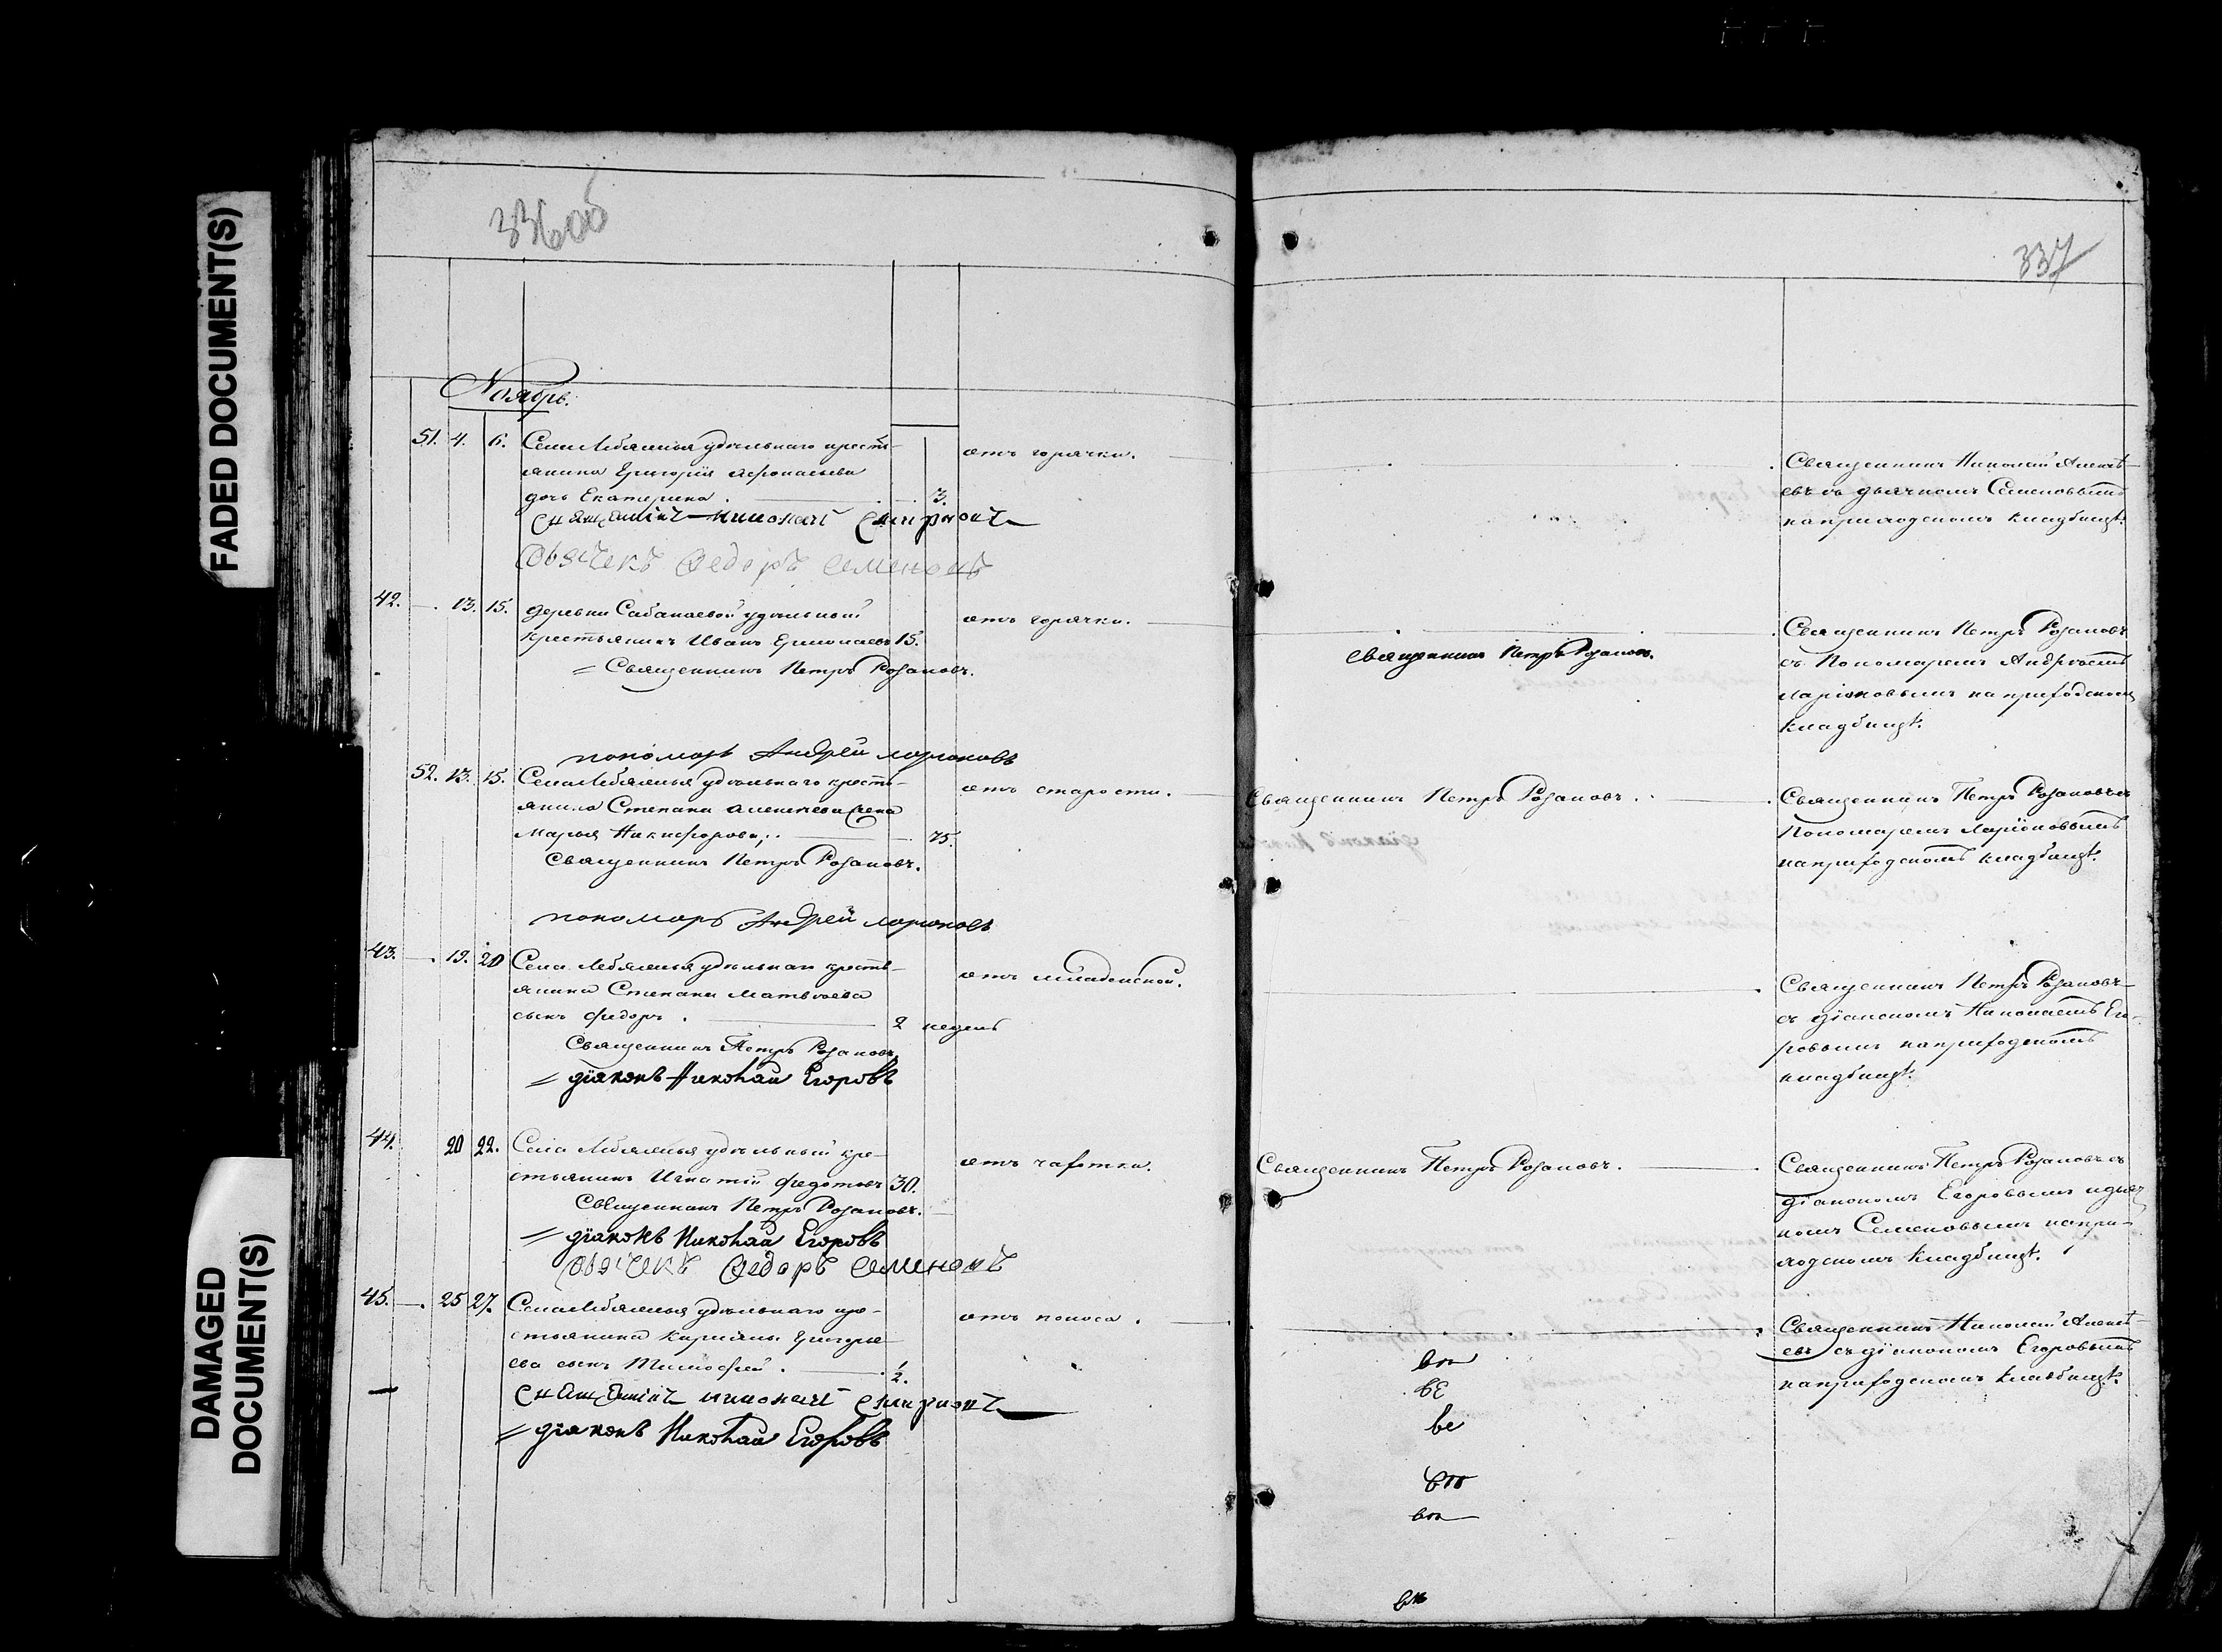 FADED DOCUMENT(S)
DAMAGED
DOCUMENT(S)
336об
337
Ноябрь.
51. 4. 6. Села Лебяжья удѣльнаго кресть-
янина Григорія Афонасьева
дочь Екатерина. 3.
отъ горячки.
Священникъ Николай Алексѣ-
евъ съ дьячкомъ Семеновымъ
на приходскомъ кладбищѣ.
Дьячекъ Федоръ Семеновъ
42. 13. 15. деревни Сабакаевой удѣльный
крестьянинъ Иванъ Ермолаевъ 15.
отъ горячки.
Священникъ Петръ Розановъ.
Священникъ Петръ Розановъ.
Священникъ Петръ Розановъ
съ Пономаремъ Андреемъ
Ларіоновымъ на приходскомъ
кладбищѣ.
пономарь Андрей ларионовъ
52. 13. 15. Села Лебяжья удѣльнаго кресть-
янина Степана Алексеева жена
Марья Никифорова; 75.
отъ старости.
Священникъ Петръ Розановъ.
Священникъ Петръ Розановъ.
Священникъ Петръ Розановъ съ
Пономаремъ Ларіоновымъ
на приходскомъ кладбищѣ.
пономарь Андрей ларионовъ
43. 19. 20 Села Лебяжья удѣльнаго кресть-
янина Степана Матвѣева
сынъ Федоръ. 2 недель
отъ младенской.
Священникъ Петръ Розановъ.
діаконъ Николай Егоровъ
Священникъ Петръ Розановъ
съ діакономъ Николаемъ Его-
ровымъ на приходскомъ
кладбищѣ.
44. 20 22. Села Лебяжья удѣльный кре-
стьянинъ Игнатій Федотовъ 30.
отъ чахотки.
Священникъ Петръ Розановъ.
Священникъ Петръ Розановъ.
діаконъ Николай Егоровъ
Дьячекъ Федоръ Семеновъ
Священникъ Петръ Розановъ съ
діакономъ Егоровымъ и дьяч
комъ Семеновымъ на при-
ходскомъ кладбищѣ.
45. 25 27. Села Лебяжья удѣльнаго кре-
стьянина Григорье-
ва сынъ Тимофей. 1/2.
отъ поноса.
Священникъ Николай Алексѣ-
евъ съ діакономъ Егоровымъ
на приходскомъ кладбищѣ.
діаконъ Николай Егоровъ